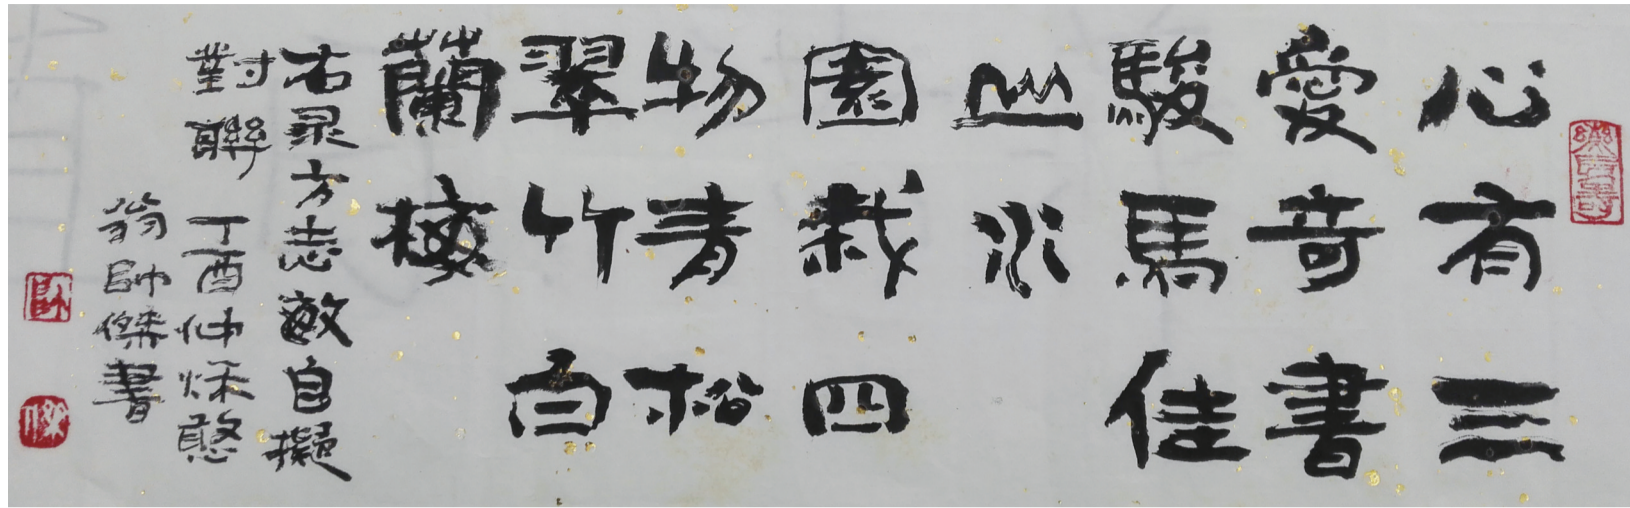 心有三
愛奇書
駿馬佳
山水
園栽四
物青松
翠竹白
蘭梅
右录方志敏自擬
對聯 丁酉仲秌憨
翁帥傑書